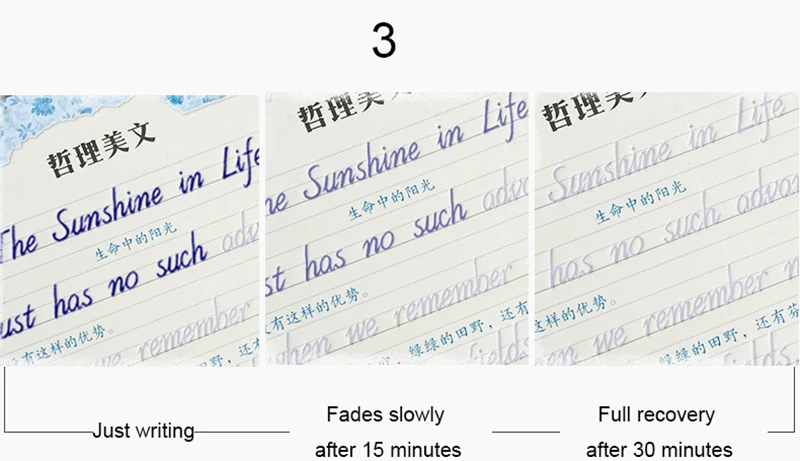 3
哲理美文
The Sunshine in Life
生命中的阳光
ust has no such adv
有这样的优势。
we remember
野，还有
哲理美
he Sunshine in Life
生命中的阳光
st has no such adva
有这样的优势。
when we remember
绿绿的田野，还有
fields
哲理美
Sunshine in Life
生命中的阳光
has no such advan
这样的优势。
en we remember n
绿绿的田野，还有芬
fields
Just writing
Fades slowly
after 15 minutes
Full recovery
after 30 minutes